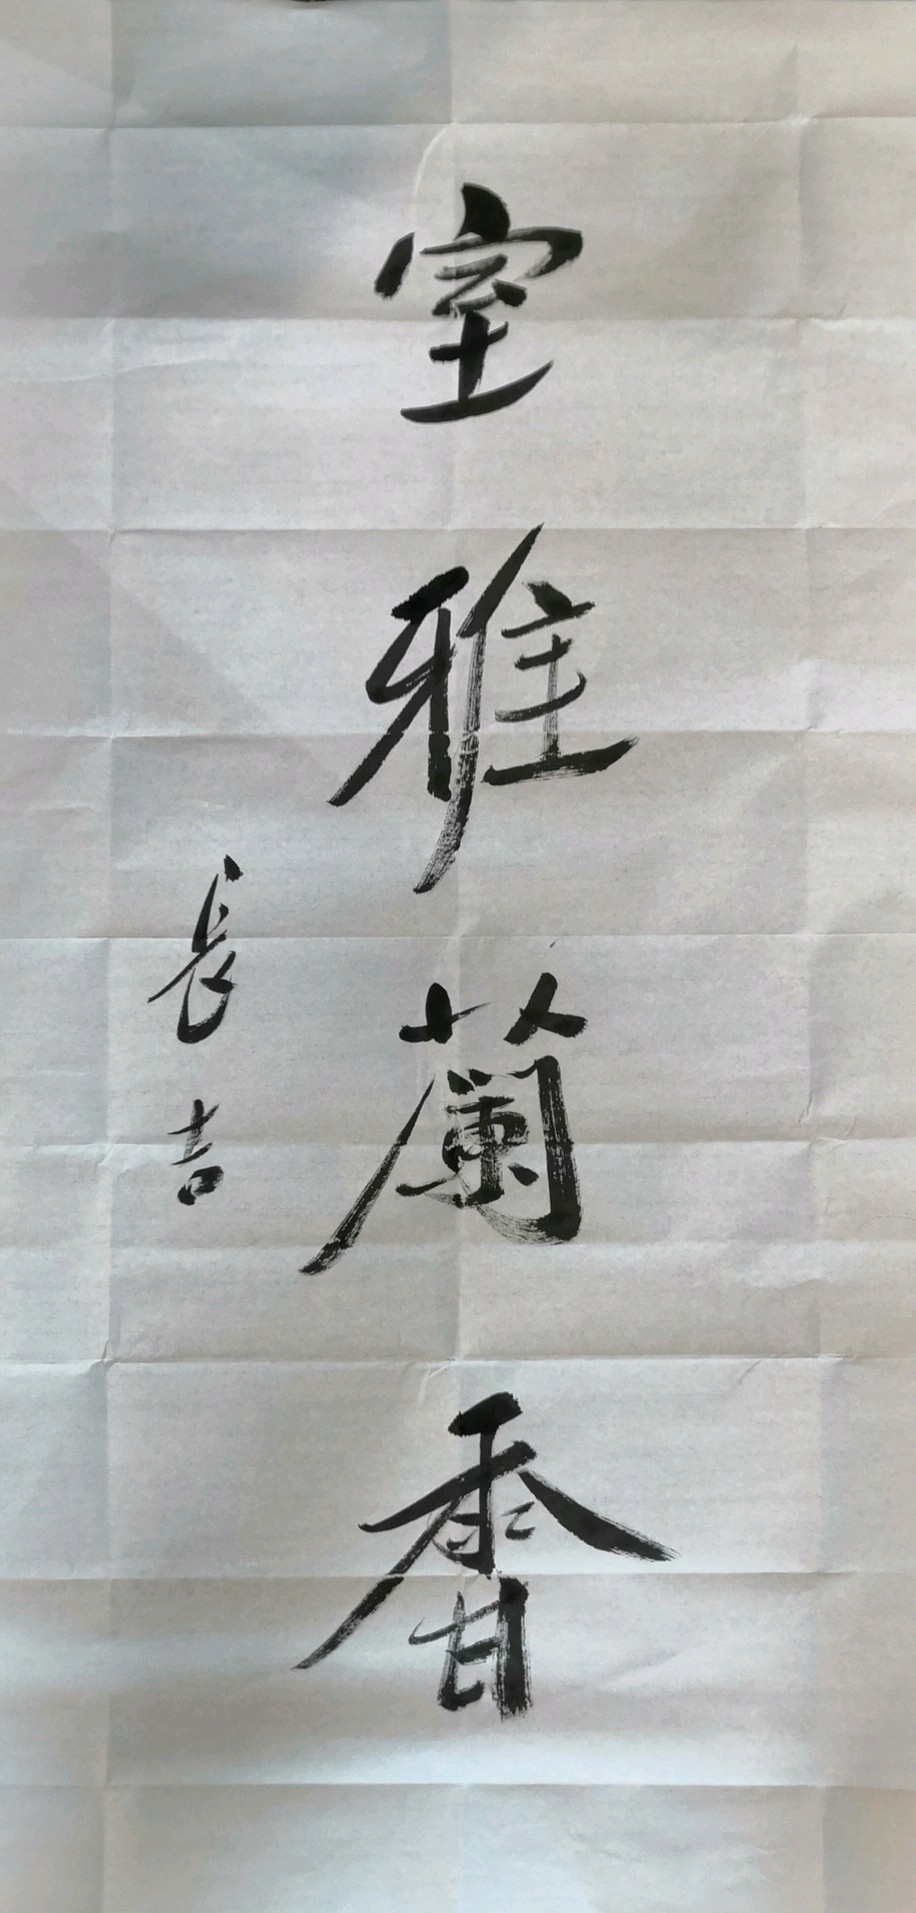 室雅蘭香
長吉